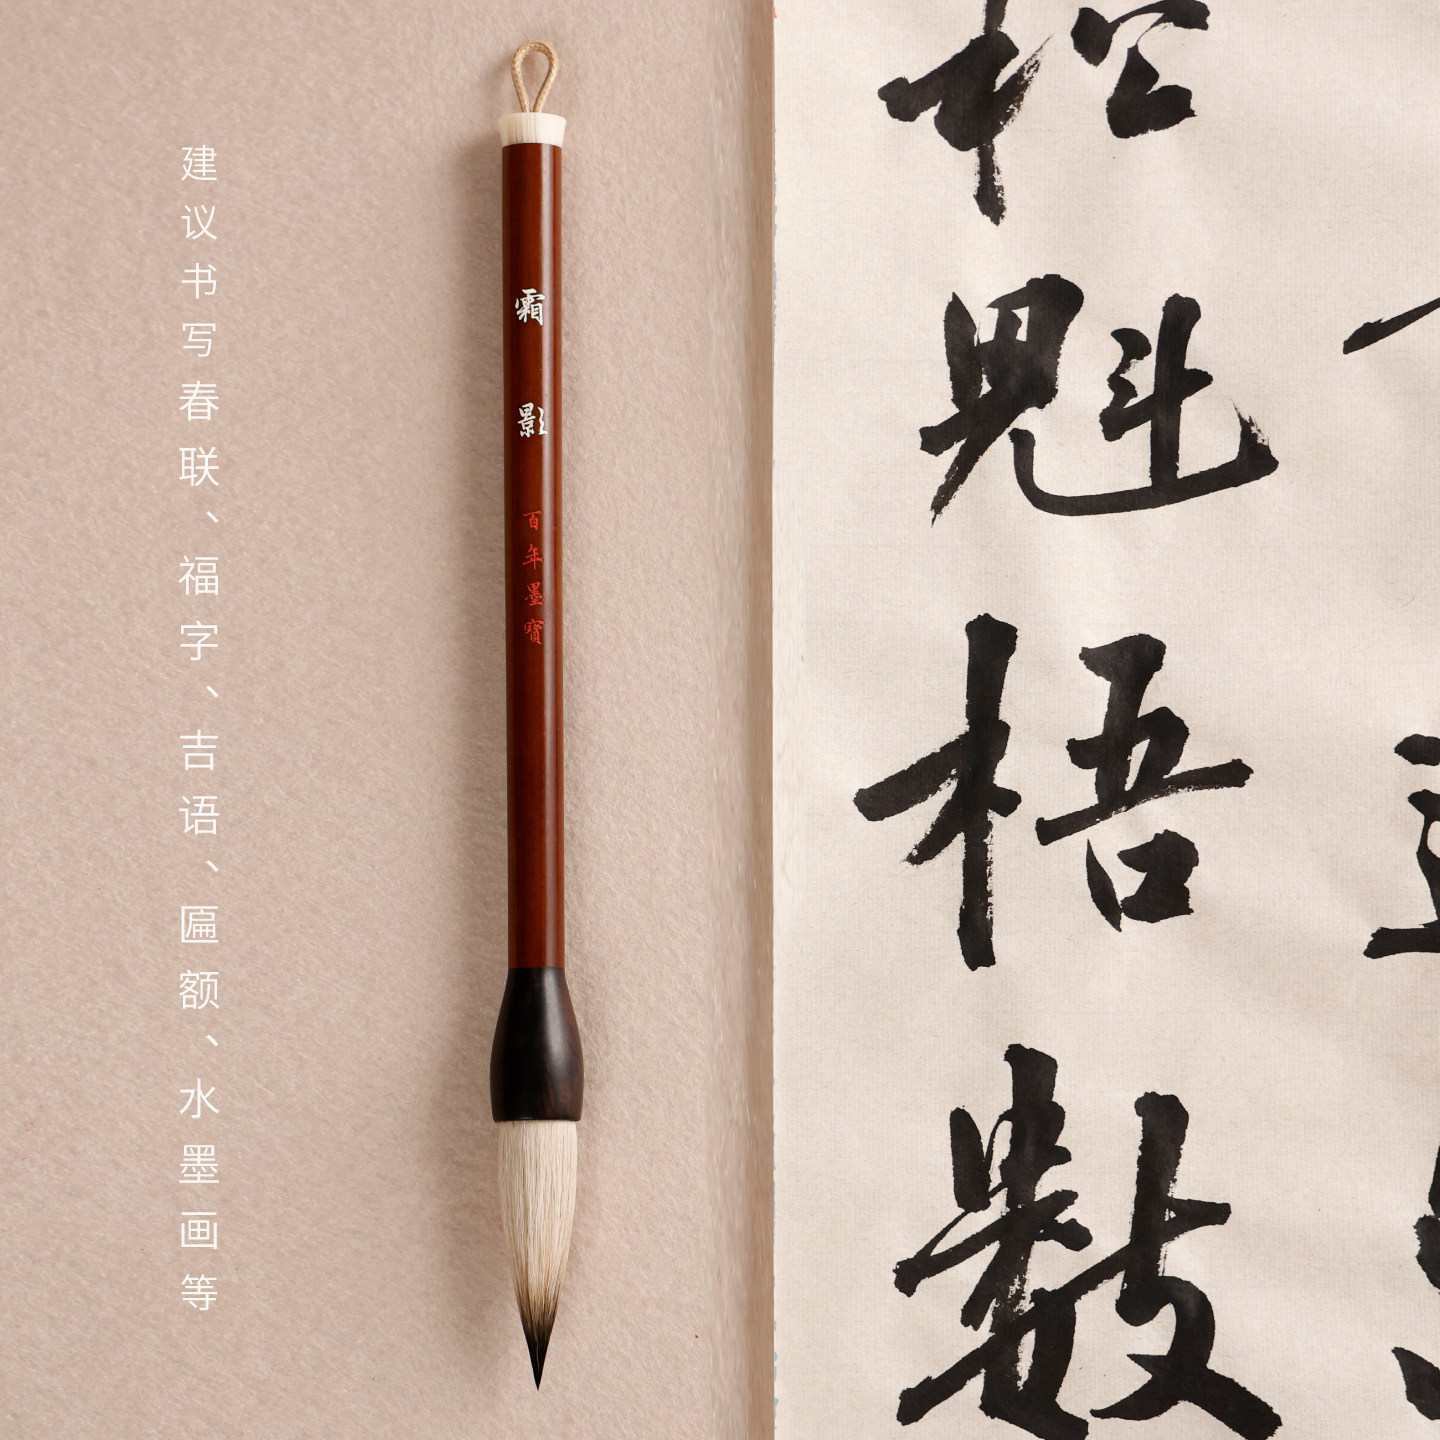 建议书写春联、福字、吉语、匾额、水墨画等
霜影
百年墨寶
松魁梧數